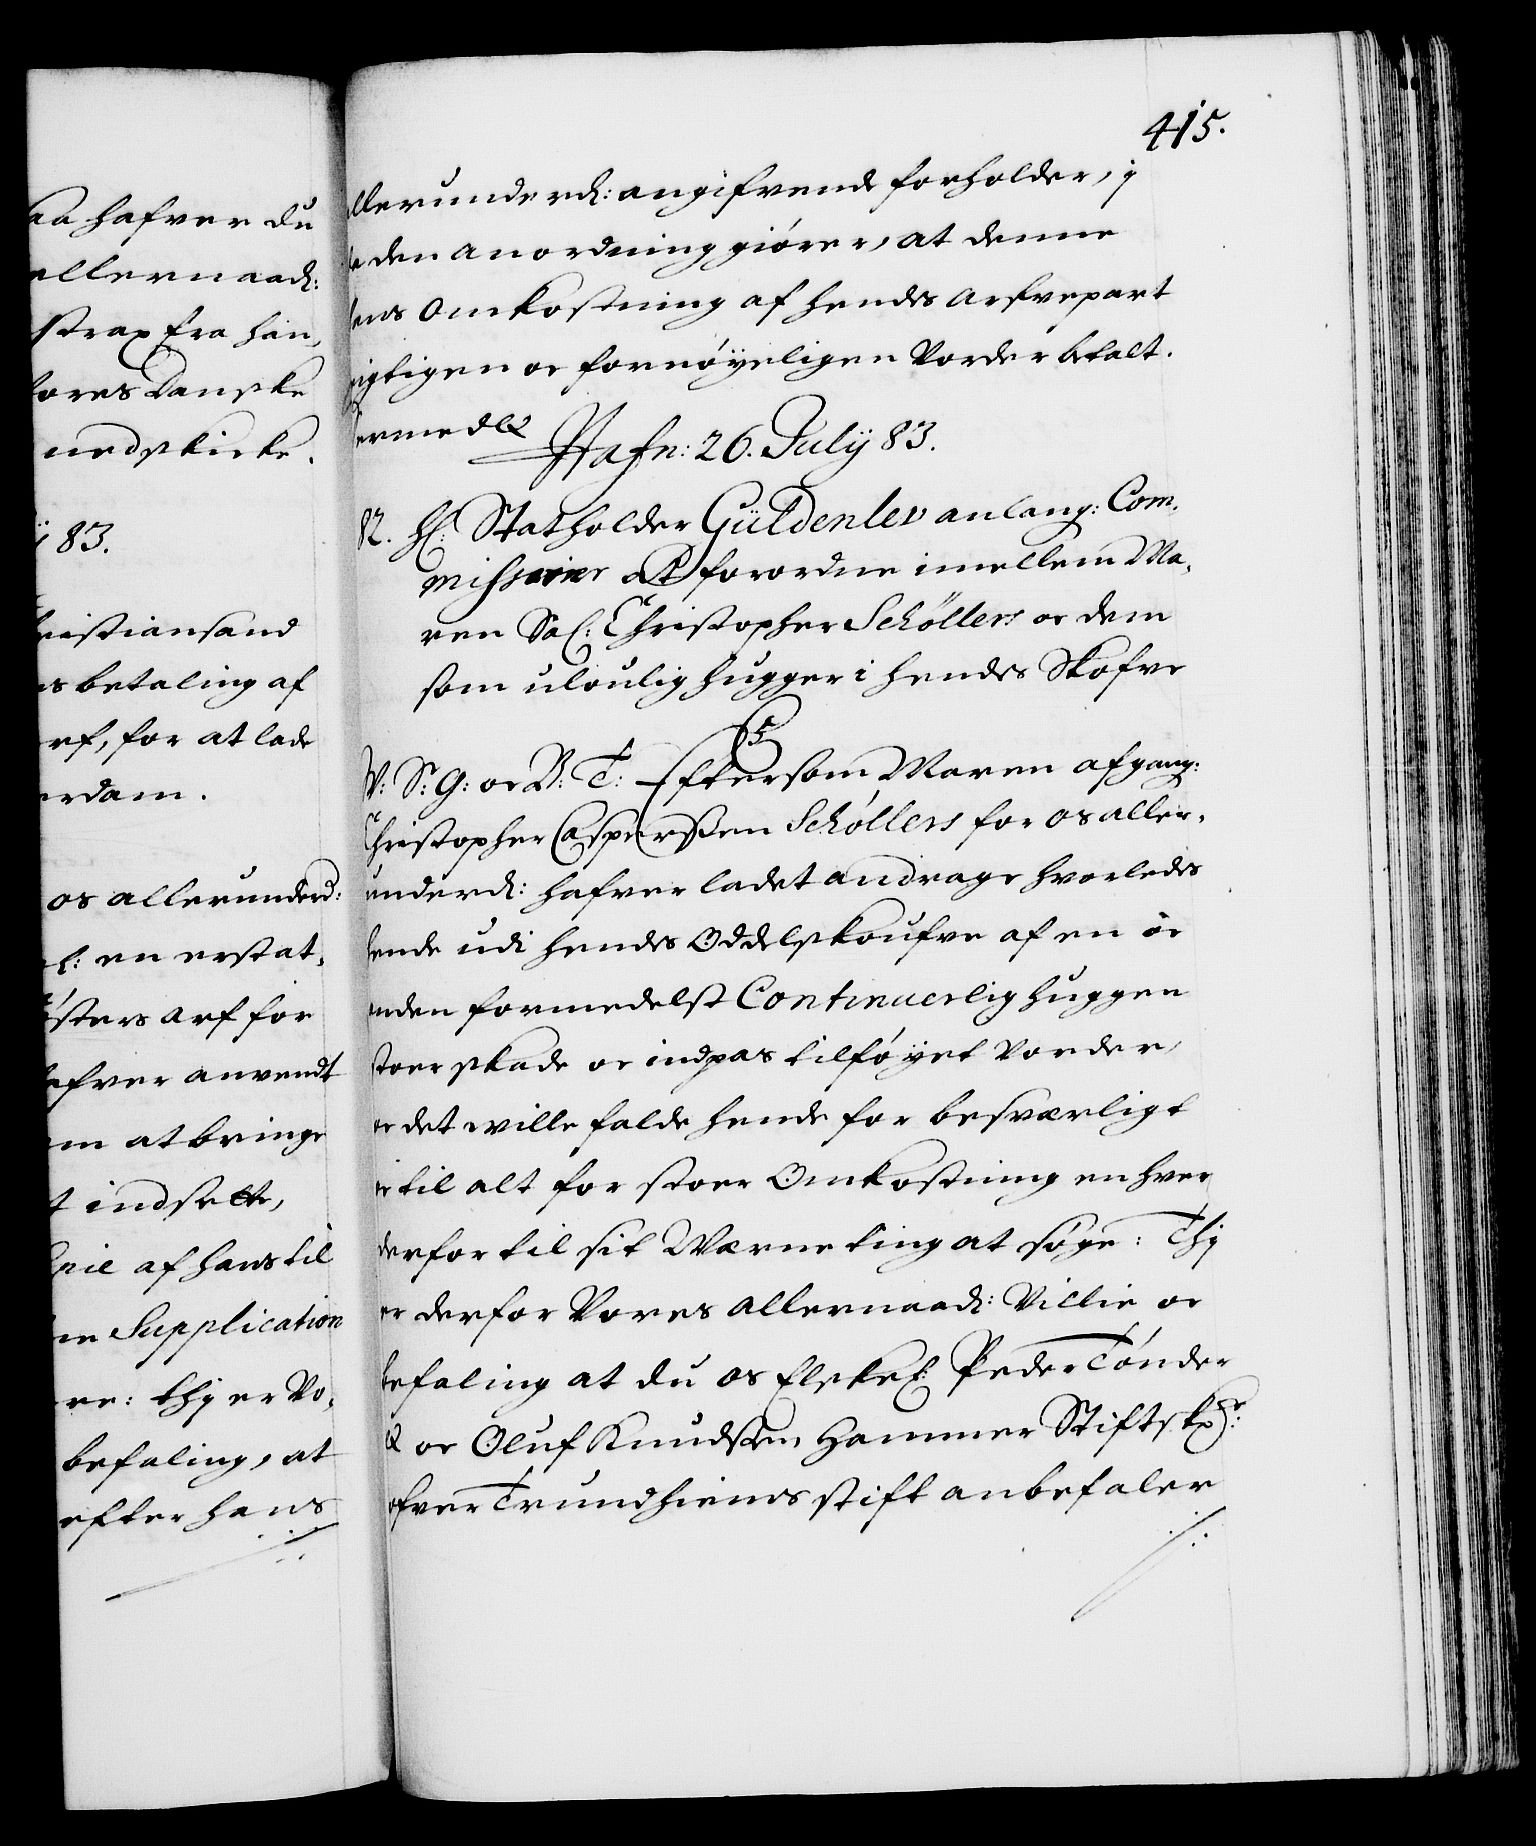 aa hafver du
allernaad:
strax fra han,
vores Danske
nedskicke.
83.
ristiansand
s betaling af
rf, for at lade
rdam.
os allerunderd:
l: en erstat,
østers arf for
afver anvendt
m at bringe
t indsette,
pie af hans til
ne Supplication
re: thj er Vo,
befaling, at
efter hans
415.
llerunderd: angifvende forholder, i
den anordning giører, at denne
ens Omkostning af hendes arfvepart
rigtigen oc fornøyeligen Vorder betalt.
ermedt
Hafn: 26. Julij 83.
H: Statholder Güldenlev anlang: Com,
missarier at forordne imellem Ma,
ren Sal: Christopher Schöllers oc dem
som uloulig hugger i hendes Skofve
C5
V: S: G: oc B: T: Eftersom Maren afgang:
Christopher Casperssen Schøllers for os aller,
underd: hafver ladet andrage hvorledis
hende udi hendes Oddelskoufve af en oc
anden formedelst Continuerlig huggen
stoer skade oc indpas tilføyet vorder,
oc det wille falde hende for besværligt
oc til alt for stoer Omkostning en hver
derfor til sit Værneting at søge: Thj
er derfor Vores allernaad: Villie oc
befaling at du os Elskel: Peder Tønder
oc Oluf Knudssen Hammer Stiftskr:
ofver Trundhiems stift anbefaler